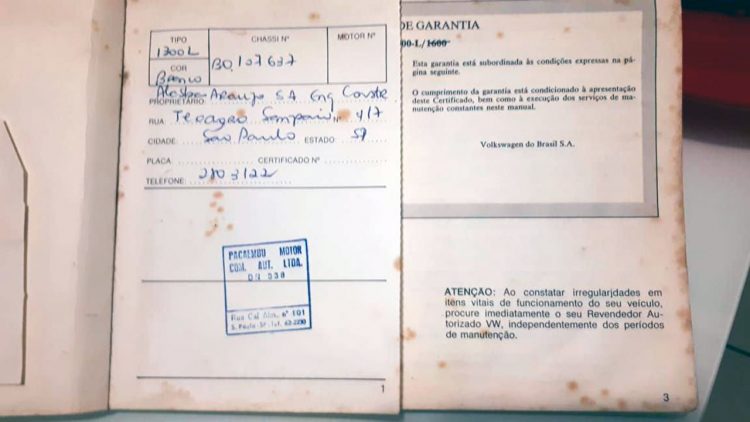 TIPO
1300 L
CHASSI Nº
BO.107637
MOTOR Nº
COR
Branco
Araujo S.A Eng Constr
PROPRIETÁRIO
RUA Sampaio Nº 417
CIDADE São Paulo ESTADO SP
PLACA CERTIFICADO Nº
TELEFONE: 2103122
PACAEMBU MOTOR
COM. AUT. LTDA.
DN 038
Nº 101
S. Paulo SP
1
DE GARANTIA
00-L/1600
Esta garantia está subordinada às condições expressas na pá-
gina seguinte.
O cumprimento da garantia está condicionado à apresentação
deste Certificado, bem como à execução dos serviços de ma-
nutenção constantes neste manual.
Volkswagen do Brasil S.A.
ATENÇÃO: Ao constatar irregularidades em
itens vitais de funcionamento do seu veículo,
procure imediatamente o seu Revendedor Au-
torizado VW, independentemente dos períodos
de manutenção.
3